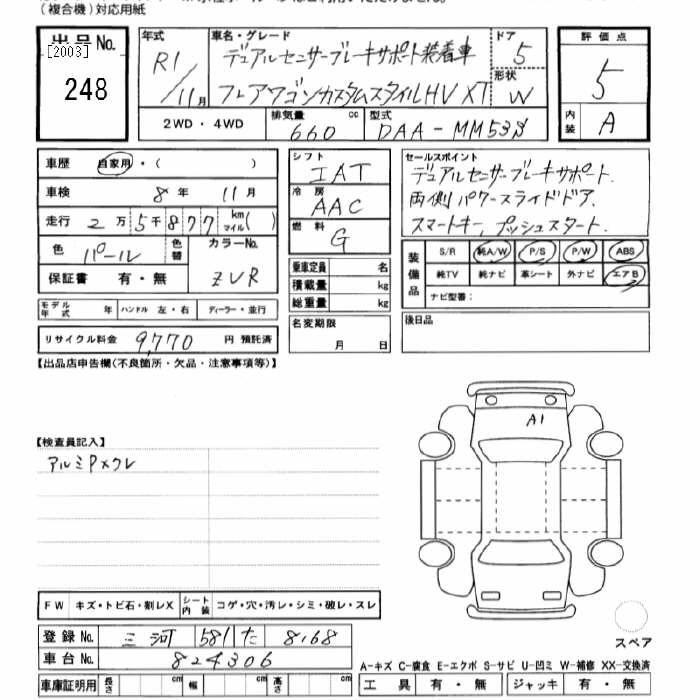 (複合機)対応用紙
出品No.
[2003]
248
年式
R1/11月
車名・グレード
デュアルセンサーブレーキサポート装着車
フレアワゴンカスタムスタイルHV XT
ドア
5
形状
W
評価点
5
内装
A
2WD・4WD
排気量
660 cc
型式
DAA-MM53S
車歴 自家用・( )
車検 8年 11月
走行 2万5千877 km マイル( )
色 パール 色替
カラーNo.
ZVR
保証書 有・無
モデル年式 年 ハンドル 左・右 ディーラー・並行
リサイクル料金 9,770 円 預託済
シフト
IAT
冷房
AAC
燃料
G
乗車定員 名
積載量 kg
総重量 kg
名変期限
月 日
セールスポイント
デュアルセンサーブレーキサポート.
両側パワースライドドア.
スマートキー, プッシュスタート.
装備品
S/R 純A/W P/S P/W ABS
純TV 純ナビ 革シート 外ナビ エアB
ナビ型番:
後日品
【出品店申告欄(不良箇所・欠品・注意事項等)】
【検査員記入】
アルミPメクレ
A1
FW キズ・トビ石・割レX シート内装 コゲ・穴・汚レ・シミ・破レ・スレ
登録No. 三河 581 た 8168
車台No. 824306
車庫証明用 長さ cm 幅 cm 高さ cm
スペア
A-キズ C-腐食 E-エクボ S-サビ U-凹ミ W-補修 XX-交換済
工具 有・無 ジャッキ 有・無